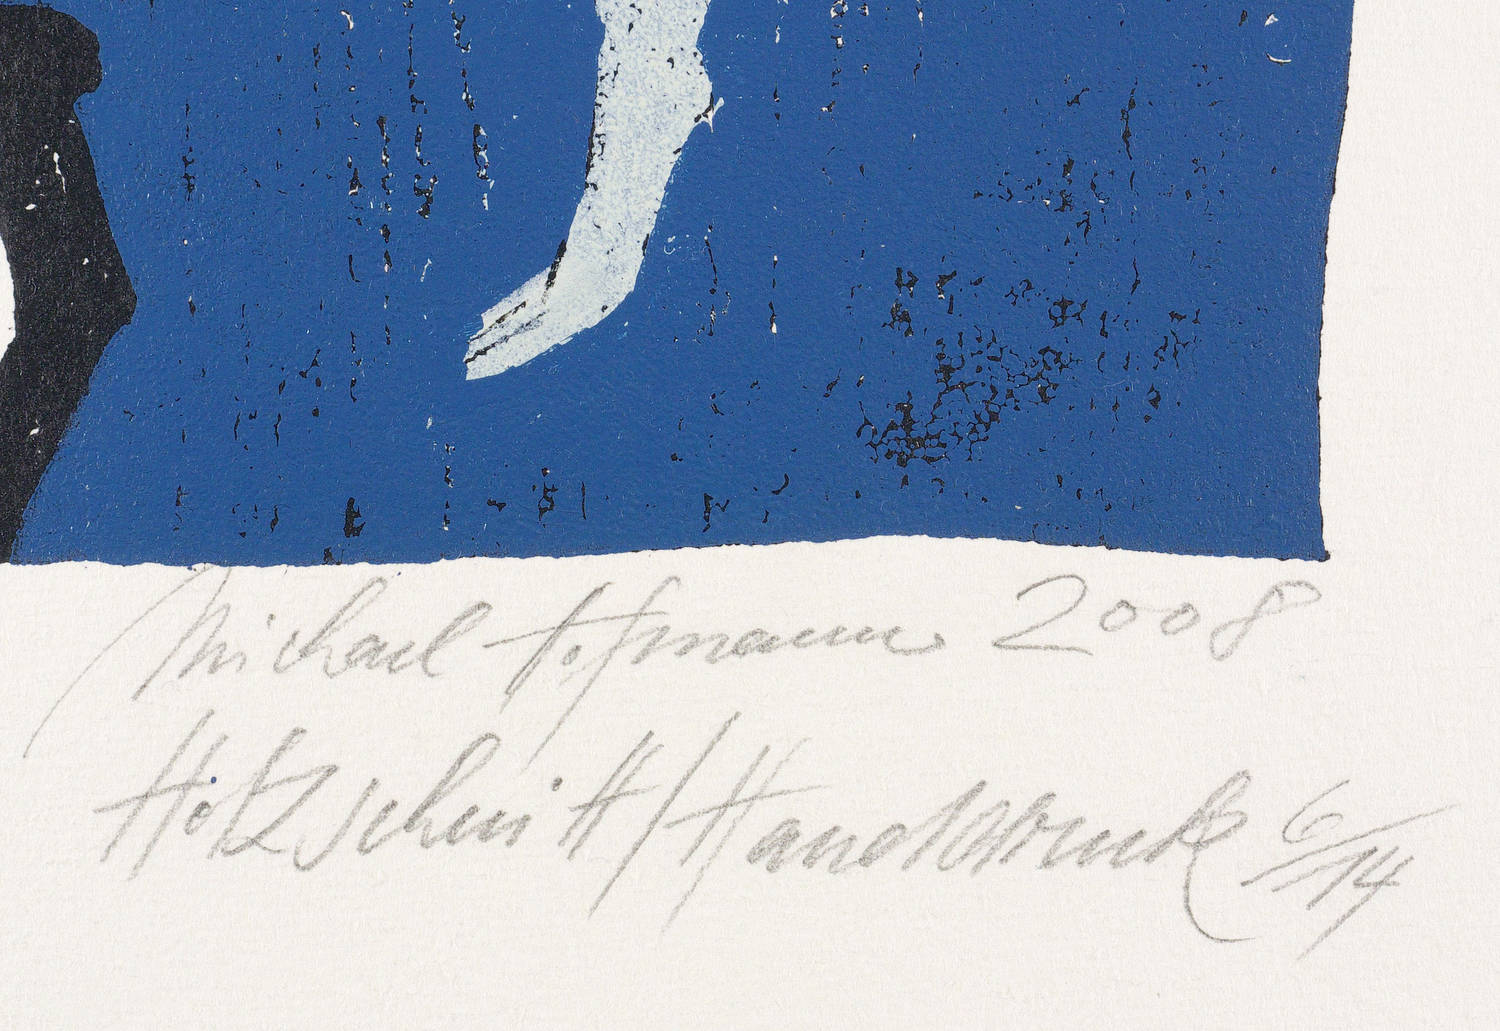 Michael Hofmann 2008
Holzschnitt/Handdruck 6/14